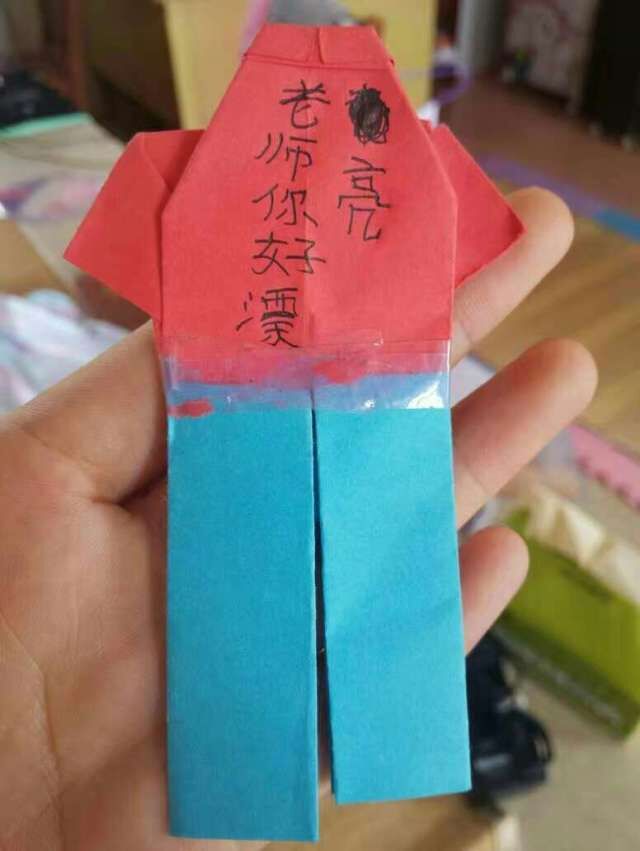 老师你好漂
亮